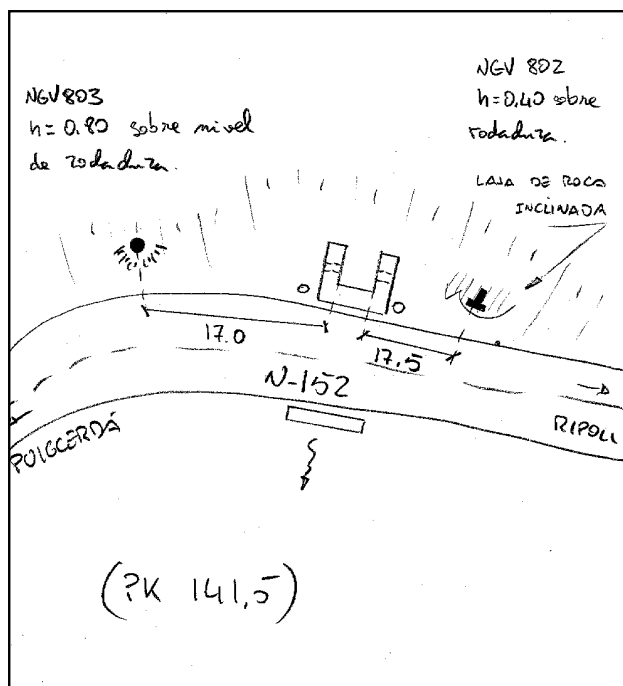 NGV803
h=0.80 sobre nivel
de rodadura.
NGV 802
h=0,40 sobre
rodadura.
LAJA DE ROCA
INCLINADA
17.0
17.5
N-152
PUIGCERDÁ
RIPOLL
(PK 141,5)